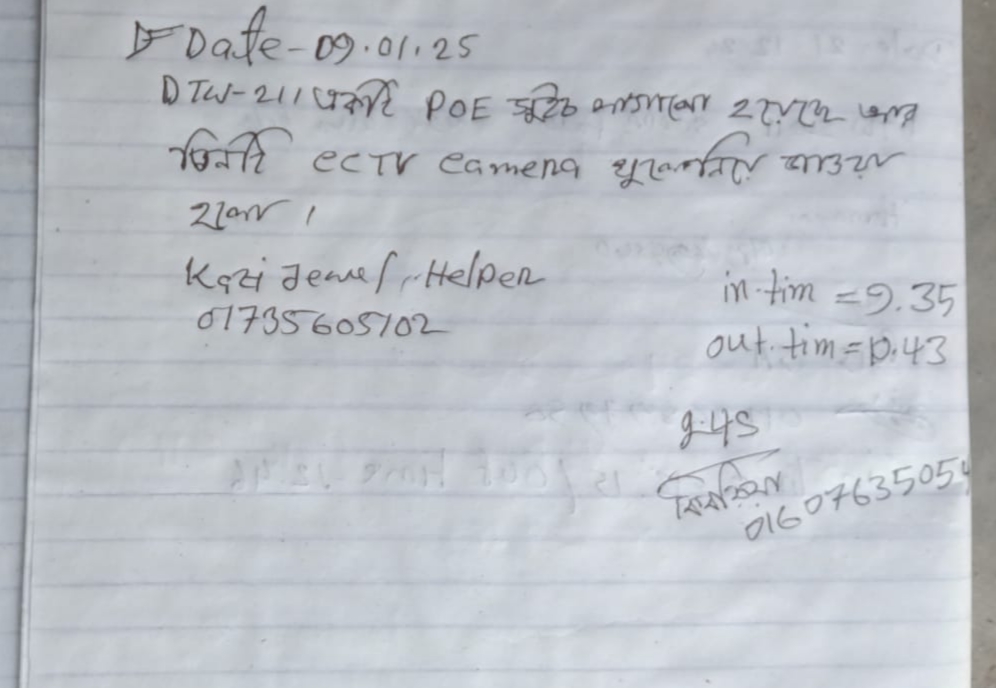 Date-09.01.25
DTW-211 একটি POE সুইচ লাগানো হয়েছে এবং
তিনটি CCTV Camera খুলে
হলো।
Kazi Jewel, Helper
01735605102
in.tim = 9.35
out.tim = 10.43
9.45
0160763505